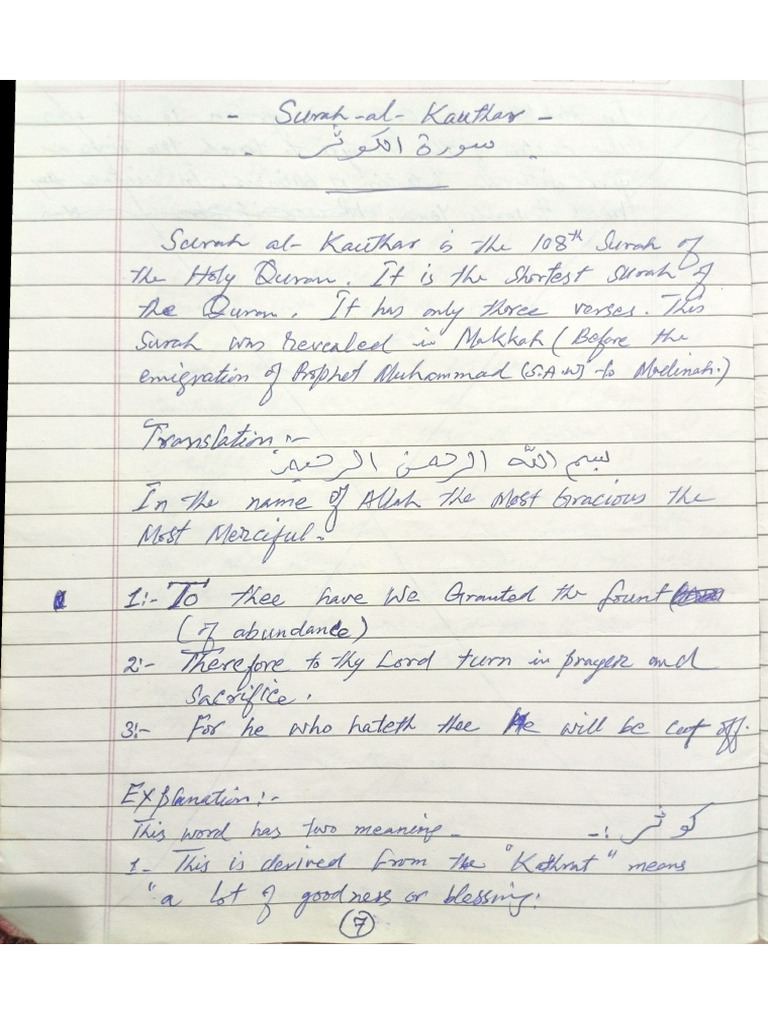 - Surah-al-Kauthar -
- سورة الكوثر -
Surah al-Kauthar is the 108th Surah of
the Holy Quran. It is the shortest surah of
the Quran. It has only three verses. This
Surah was revealed in Makkah (Before the
emigration of Prophet Muhammad (S.A.W) to Madinah.)
Translation:-
بسم الله الرحمن الرحيم
In the name of Allah the Most Gracious the
Most Merciful.
1:- To thee have We Granted the fount
(of abundance)
2:- Therefore to thy Lord turn in prayer and
Sacrifice.
3:- For he who hateth thee He will be cut off.
Explanation:-
This word has two meaning - كوثر :-
1- This is derived from the "Kathrat" means
"a lot of goodness or blessing.
7